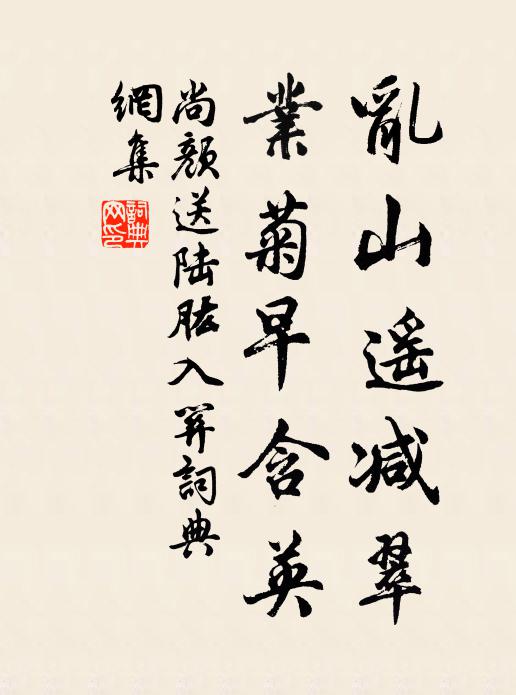 亂山遥減翠
業菊早含英
尚顏送陸肱入關詞典
網集
詞典
网印